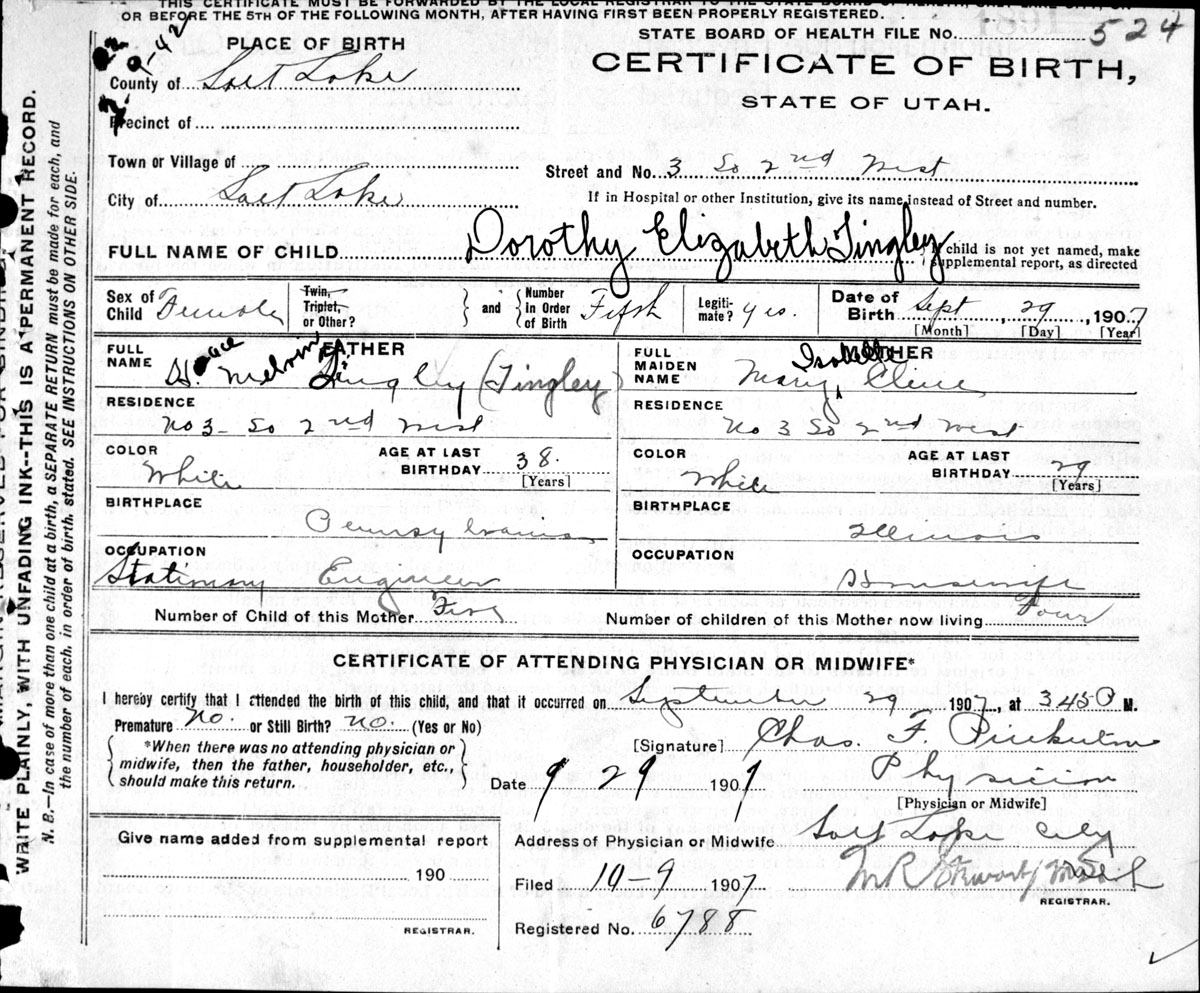 THIS CERTIFICATE MUST BE FORWARDED BY THE LOCAL REGISTRAR TO THE STATE BOARD OF HEALTH, SALT LAKE CITY, ON
OR BEFORE THE 5TH OF THE FOLLOWING MONTH, AFTER HAVING FIRST BEEN PROPERLY REGISTERED.
STATE BOARD OF HEALTH FILE No. 524
PLACE OF BIRTH
CERTIFICATE OF BIRTH,
STATE OF UTAH.
County of Salt Lake
Precinct of
Town or Village of
Street and No. 3 So 2nd West
City of Salt Lake
If in Hospital or other Institution, give its name, instead of Street and number.
FULL NAME OF CHILD Dorothy Elizabeth Tingley
If child is not yet named, make supplemental report, as directed
Sex of Child Female
Twin, Triplet, or Other?
and
Number in Order of Birth Fifth
Legitimate? yes.
Date of Birth Sept 29, 1907
[Month] [Day] [Year]
FATHER
FULL NAME Horace Melvin Tingley (Tingley)
RESIDENCE
No 3 - So 2nd West
COLOR
White
AGE AT LAST BIRTHDAY 38.
[Years]
BIRTHPLACE
Pennsylvania
OCCUPATION
Stationary Engineer
MOTHER
FULL MAIDEN NAME Mary Isabelle Cline
RESIDENCE
No 3 So 2nd West
COLOR
White
AGE AT LAST BIRTHDAY 29
[Years]
BIRTHPLACE
Illinois
OCCUPATION
Housewife
Number of Child of this Mother Five
Number of children of this Mother now living Four
CERTIFICATE OF ATTENDING PHYSICIAN OR MIDWIFE*
I hereby certify that I attended the birth of this child, and that it occurred on September 29 1907, at 345 P M.
Premature No. or Still Birth? no. (Yes or No)
*When there was no attending physician or
midwife, then the father, householder, etc.,
should make this return.
[Signature] Chas. F.
Date 9 29 1907
Physician
[Physician or Midwife]
Give name added from supplemental report
190
REGISTRAR.
Address of Physician or Midwife Salt Lake City
Filed 10-9 1907
REGISTRAR.
Registered No. 6788
WRITE PLAINLY, WITH UNFADING INK--THIS IS A PERMANENT RECORD.
N. B.--In case of more than one child at a birth, a SEPARATE RETURN must be made for each, and
the number of each, in order of birth, stated. SEE INSTRUCTIONS ON OTHER SIDE.